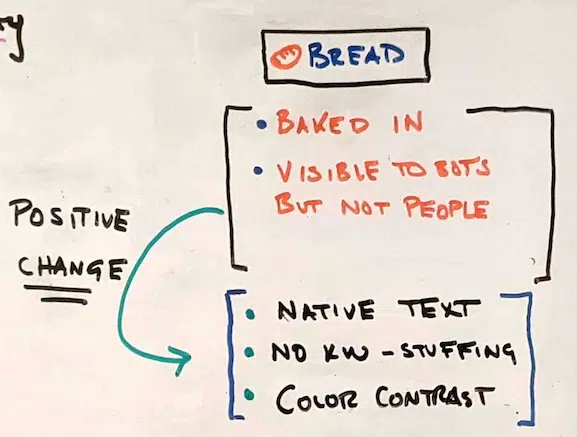 BREAD
• BAKED IN
• VISIBLE TO BOTS
BUT NOT PEOPLE
POSITIVE
CHANGE
• NATIVE TEXT
• NO KW-STUFFING
• COLOR CONTRAST